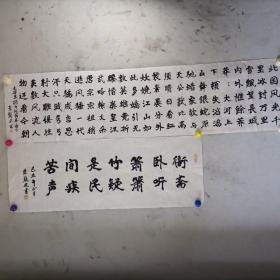 北国风光千
里冰封万里
雪飘望长城
内外惟馀莽
莽大河上
下顿失滔滔
山舞银蛇原
驰蜡象欲与
天公试比高
须晴日看红
装素裹分外
妖娆江山如
此多娇引无
数英雄竞折
腰惜秦皇汉
武略输文采
唐宗宋祖稍
逊风骚一代
天骄成吉思
汗只识弯弓
射大雕俱往
矣数风流人
物还看今朝
衙斋
卧听
箫箫
竹疑
是民
间疾
苦声